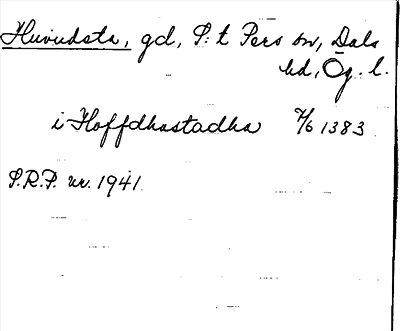 Huvudsta, gd, S:t Pers sn, Dals
hd, Ög. l.
i Hoffdhastadha 7/6 1383
S.R.P. nr. 1941.